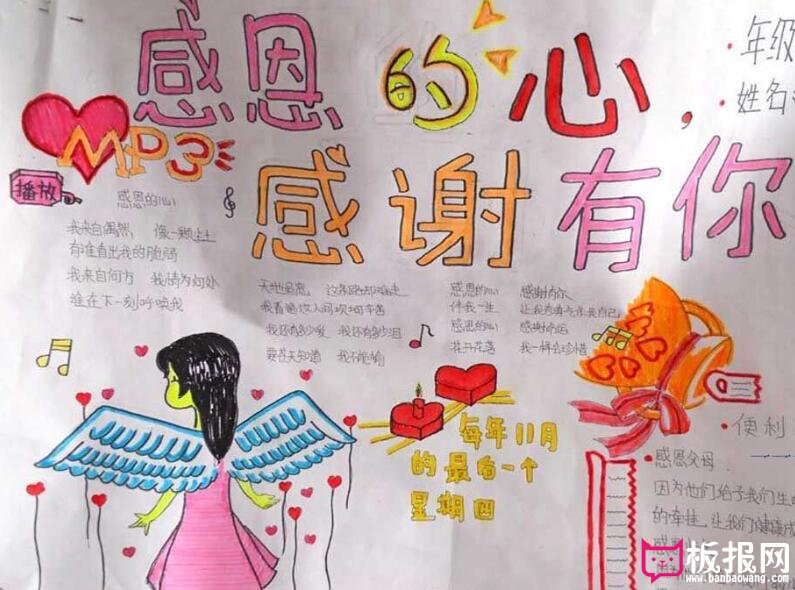 感恩的心，
感谢有你
年级
姓名
MP3
播放
感恩的心
我来自偶然 像一颗尘土
有谁看出我的脆弱
我来自何方 我情归何处
谁在下一刻呼唤我
天地虽宽 这条路却难走
我看遍这人间坎坷辛苦
我还有多少爱 我还有多少泪
要苍天知道 我不认输
感恩的心 感谢有你
伴我一生 让我有勇气作我自己
感恩的心 感谢命运
花开花落 我一样会珍惜
每年11月
的最后一个
星期四
便利
感恩父母
因为他们给予我们生
的牵挂，让我们健康成
感恩
板报网
www.banbaowang.com